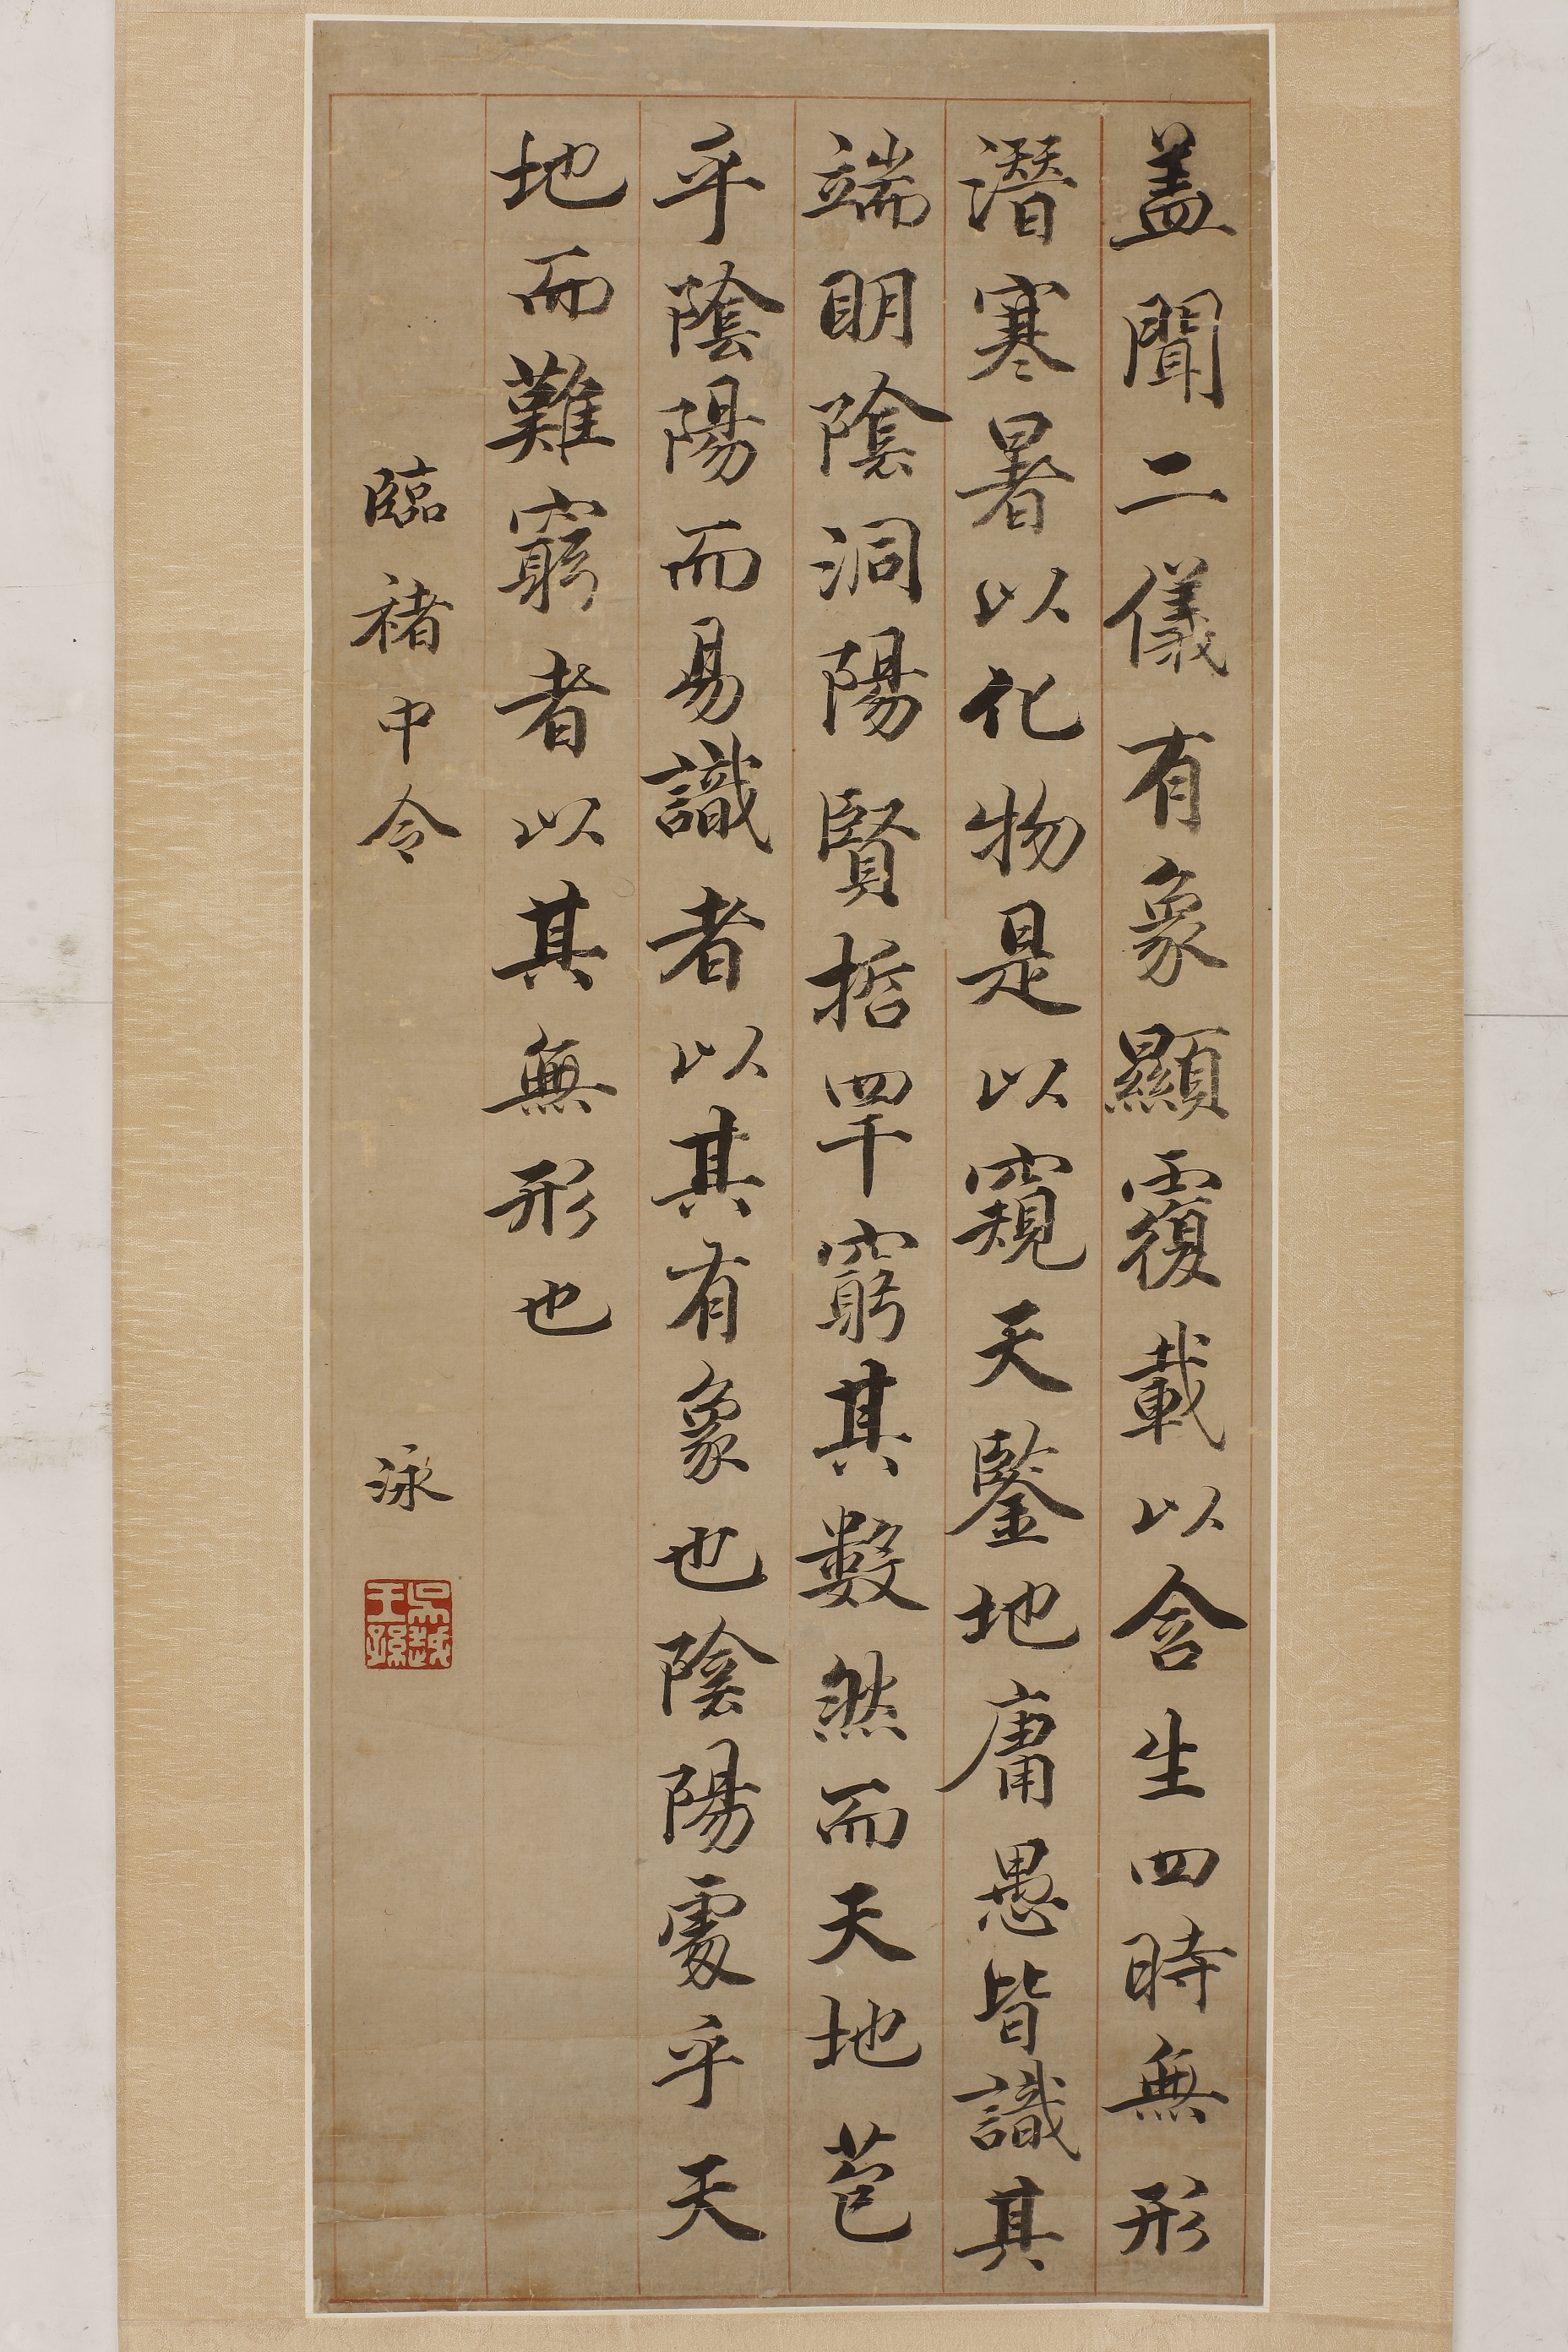 盖聞二儀有象顯覆載以含生四時無形
潛寒暑以化物是以窺天鑒地庸愚皆識其
端明陰洞陽賢哲罕窮其數然而天地苞
乎陰陽而易識者以其有象也陰陽處乎天
地而難窮者以其無形也
臨褚中令 泳
吳越王孫